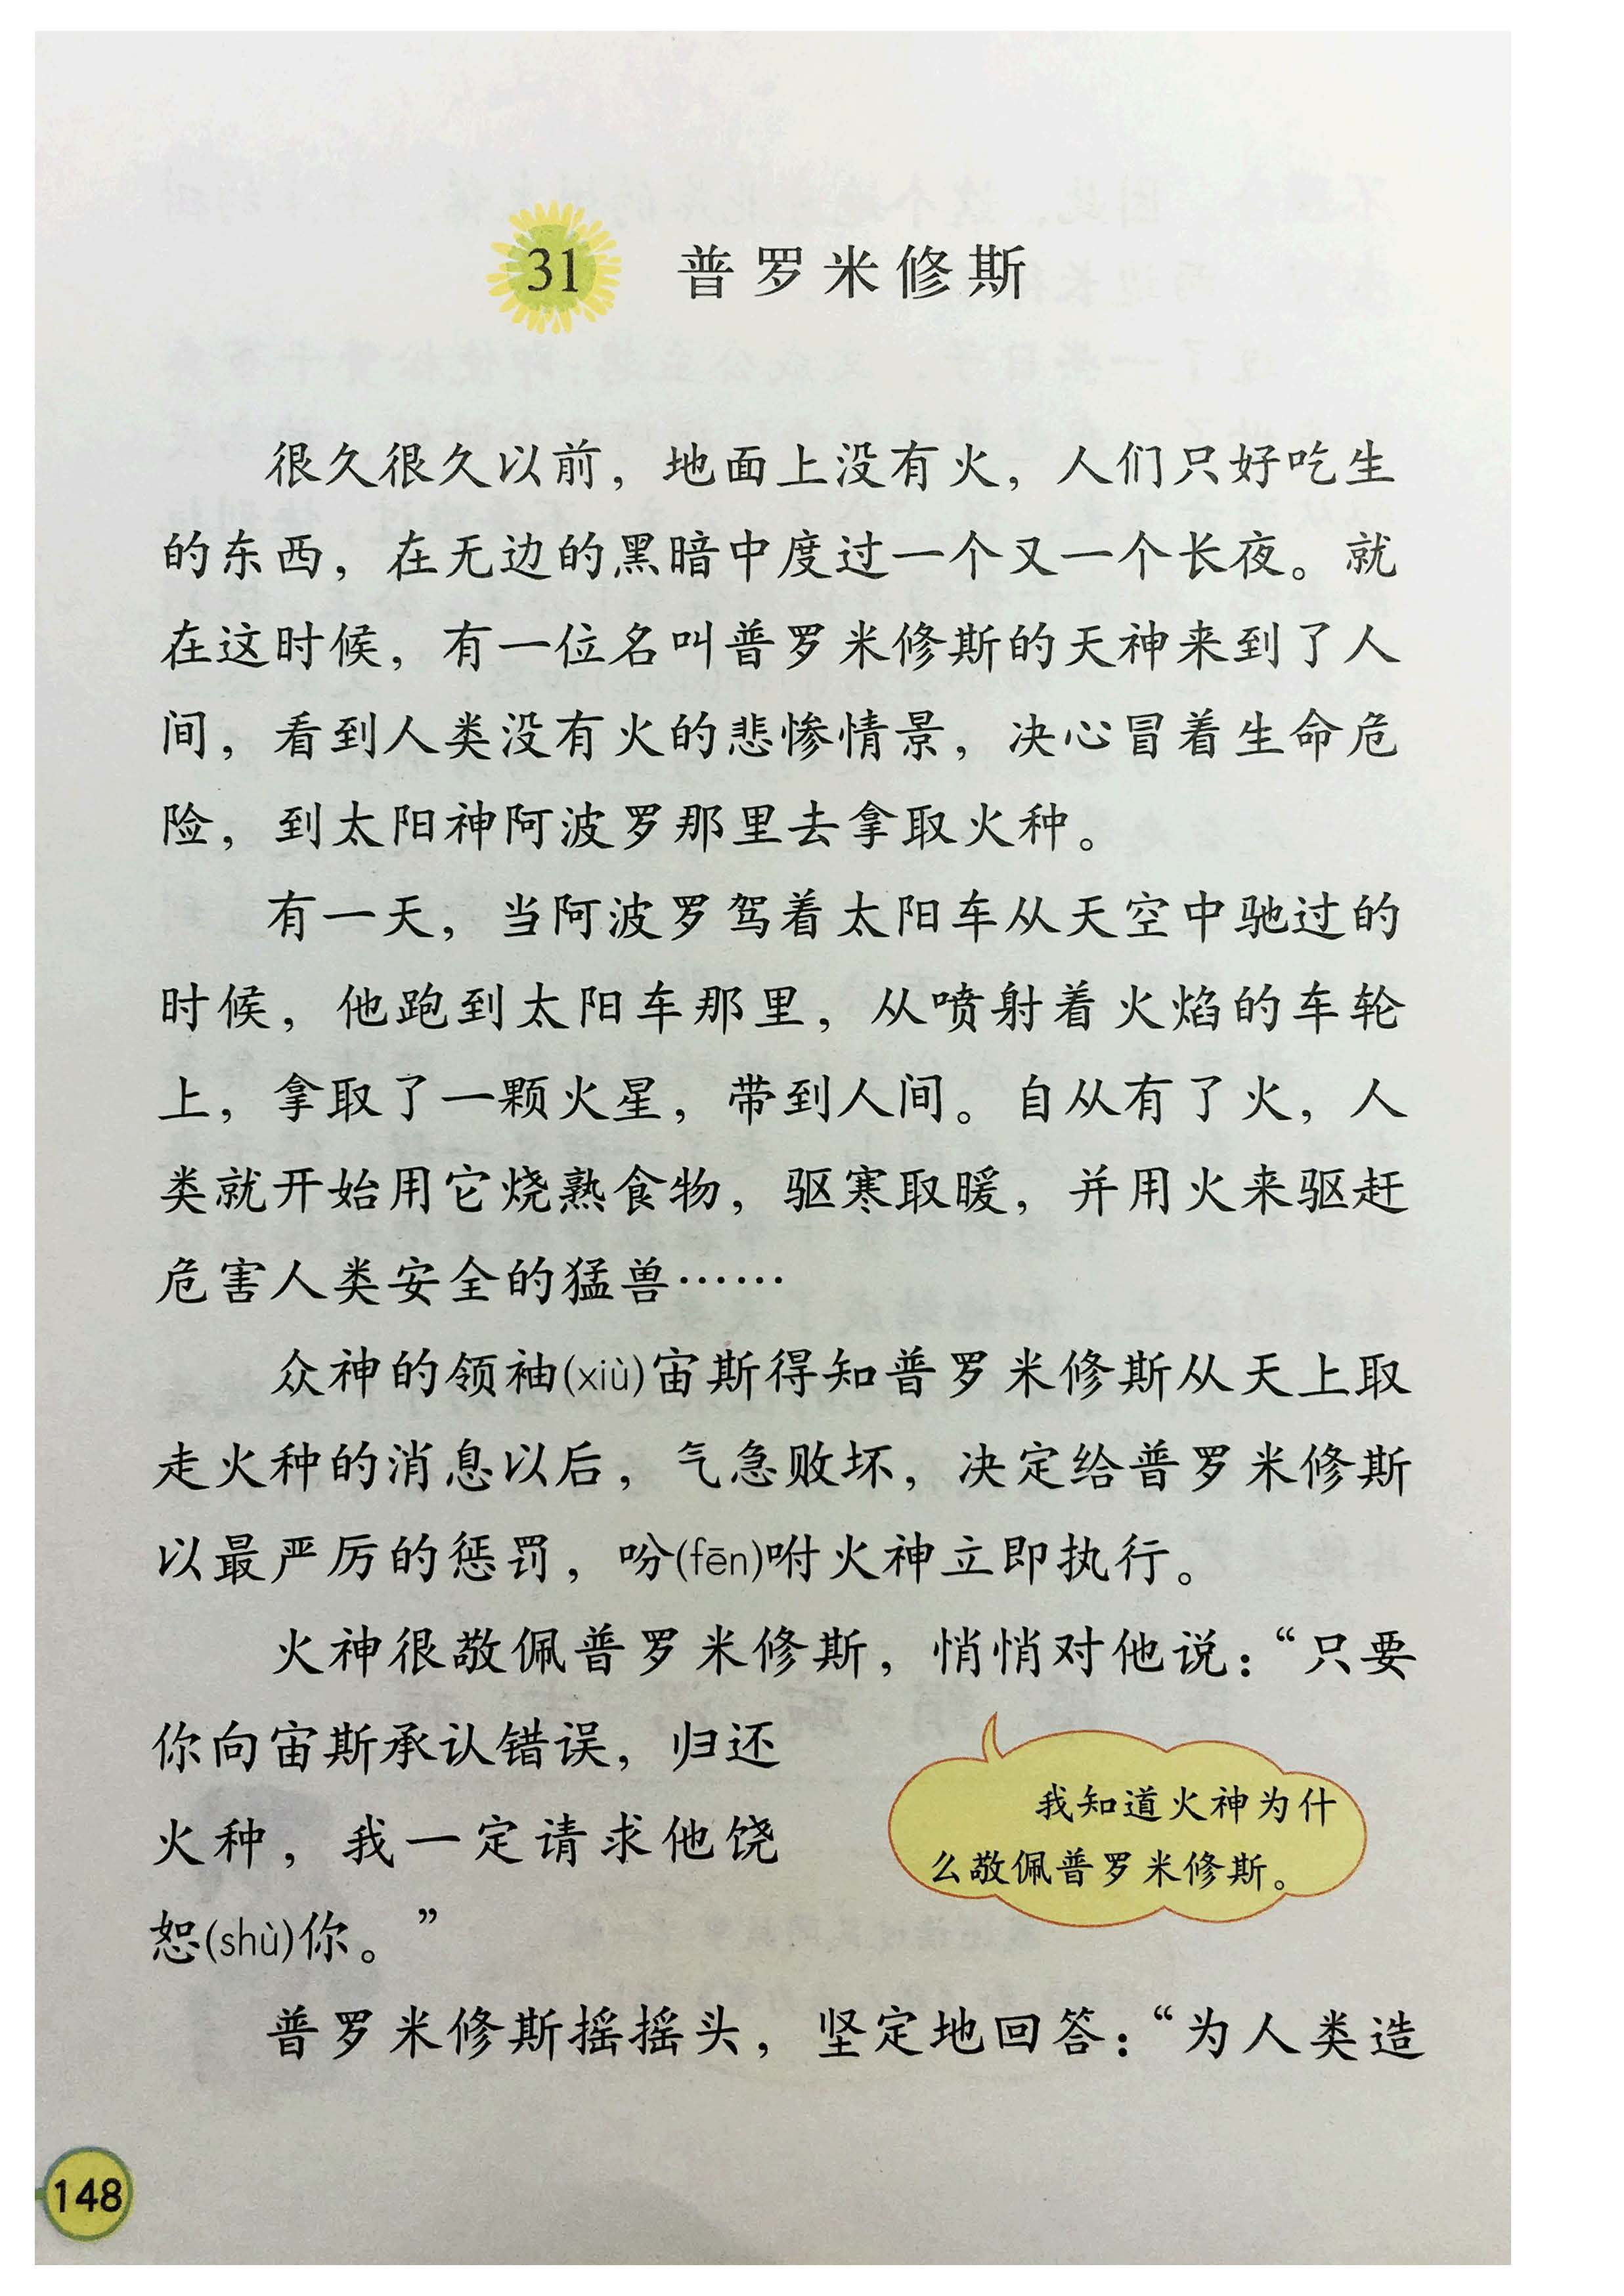 31 普罗米修斯
很久很久以前，地面上没有火，人们只好吃生
的东西，在无边的黑暗中度过一个又一个长夜。就
在这时候，有一位名叫普罗米修斯的天神来到了人
间，看到人类没有火的悲惨情景，决心冒着生命危
险，到太阳神阿波罗那里去拿取火种。
有一天，当阿波罗驾着太阳车从天空中驰过的
时候，他跑到太阳车那里，从喷射着火焰的车轮
上，拿取了一颗火星，带到人间。自从有了火，人
类就开始用它烧熟食物，驱寒取暖，并用火来驱赶
危害人类安全的猛兽……
众神的领袖(xiù)宙斯得知普罗米修斯从天上取
走火种的消息以后，气急败坏，决定给普罗米修斯
以最严厉的惩罚，吩(fēn)咐火神立即执行。
火神很敬佩普罗米修斯，悄悄对他说：“只要
你向宙斯承认错误，归还
火种，我一定请求他饶
恕(shù)你。”
我知道火神为什
么敬佩普罗米修斯。
普罗米修斯摇摇头，坚定地回答：“为人类造
148